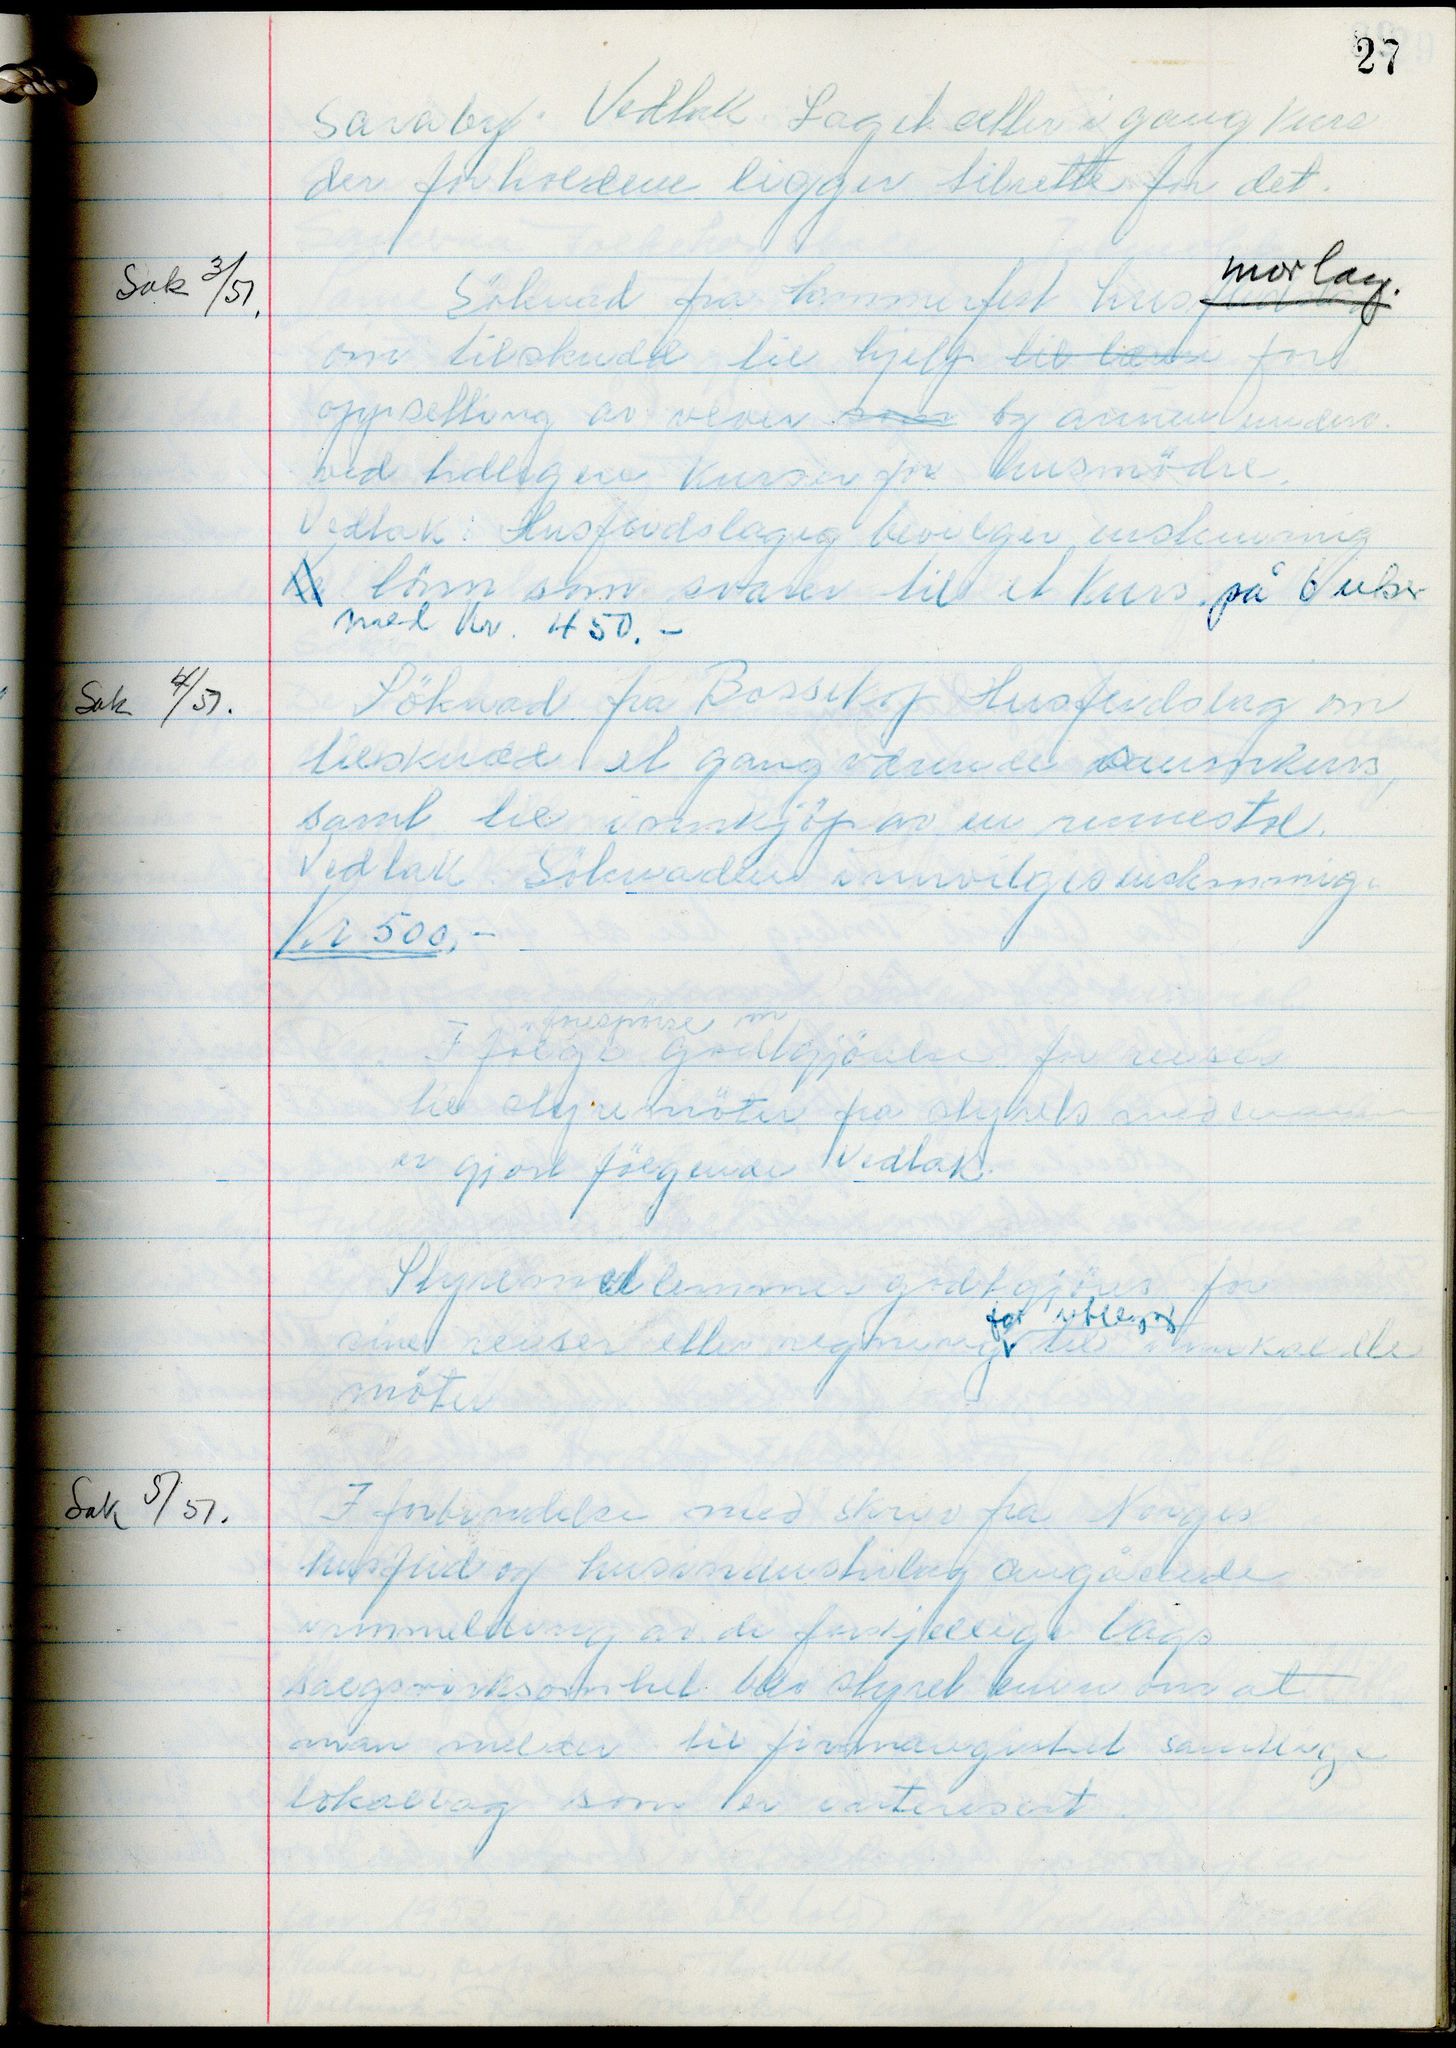 27
Saraby. Vedtak Laget setter i gang kurs
der forholdene ligger tilrette for det.
Sak 3/51. Söknad fra Hammerfest husmorlag.
om tilskudd til hjelp til lærer for
oppsetting av vever som og annen underv.
ved tidligere kurser for husmödre.
Vedtak: Husflidslaget bevilger enstemmig
lönn som svarer til et kurs på 6 uker
med kr. 450.-
Sak 4/51. Söknad fra Bossekop Husflidslag om
tilskudd et gangværende saumkurs,
samt til innkjöp av en rennestol.
Vedtak. Söknaden innvilges enstemmig.
Kr 500,-
forespörse om
I fölge godtgjörelse for reiser
til styremöter fra styrets medlemmer
er gjort fölgende Vedtak.
Styremedlemmer godtgjöres for
for utlegg
sine reiser etter regning til innkaldte
möter
Sak 5/51. I forbindelse med skriv fra Norges
husflid og husindustrilag angående
innmelding av de forskjellige lags
salgsvirksomhet blev styret enig om at
man melder til firmaregistret samtlige
lokallag som er interesert.